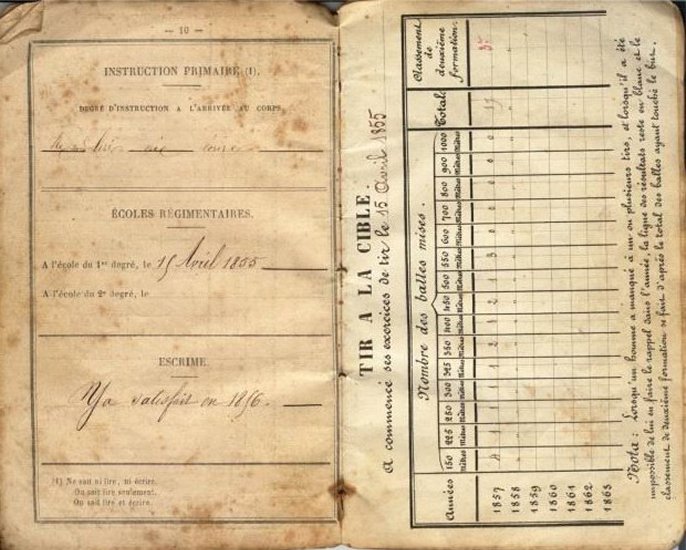 — 10 —
INSTRUCTION PRIMAIRE (1).
DEGRÉ D'INSTRUCTION A L'ARRIVÉE AU CORPS.
ni
ÉCOLES RÉGIMENTAIRES.
A l'école du 1er degré, le 15 Avril 1855
A l'école du 2e degré, le
ESCRIME.
Y a satisfait en 1856.
(1) Ne sait ni lire, ni écrire.
Ou sait lire seulement.
Ou sait lire et écrire.
TIR A LA CIBLE.
A commencé ses exercices de tir le 15 Avril 1855
Années
Nombre des balles mises.
Total.
Classement de deuxième formation.
150 Mètres 225 Mètres 250 Mètres 300 Mètres 325 Mètres 350 Mètres 400 Mètres 450 Mètres 500 Mètres 550 Mètres 600 Mètres 700 Mètres 800 Mètres 900 Mètres 1000 Mètres
1857
1858
1859
1860
1861
1862
1863
Nota : Lorsqu'un homme a manqué à un ou plusieurs tirs, et lorsqu'il a été
impossible de lui en faire le rappel dans l'année, la ligne des résultats reste en blanc et le
classement de deuxième formation se fait d'après le total des balles ayant touché le but.